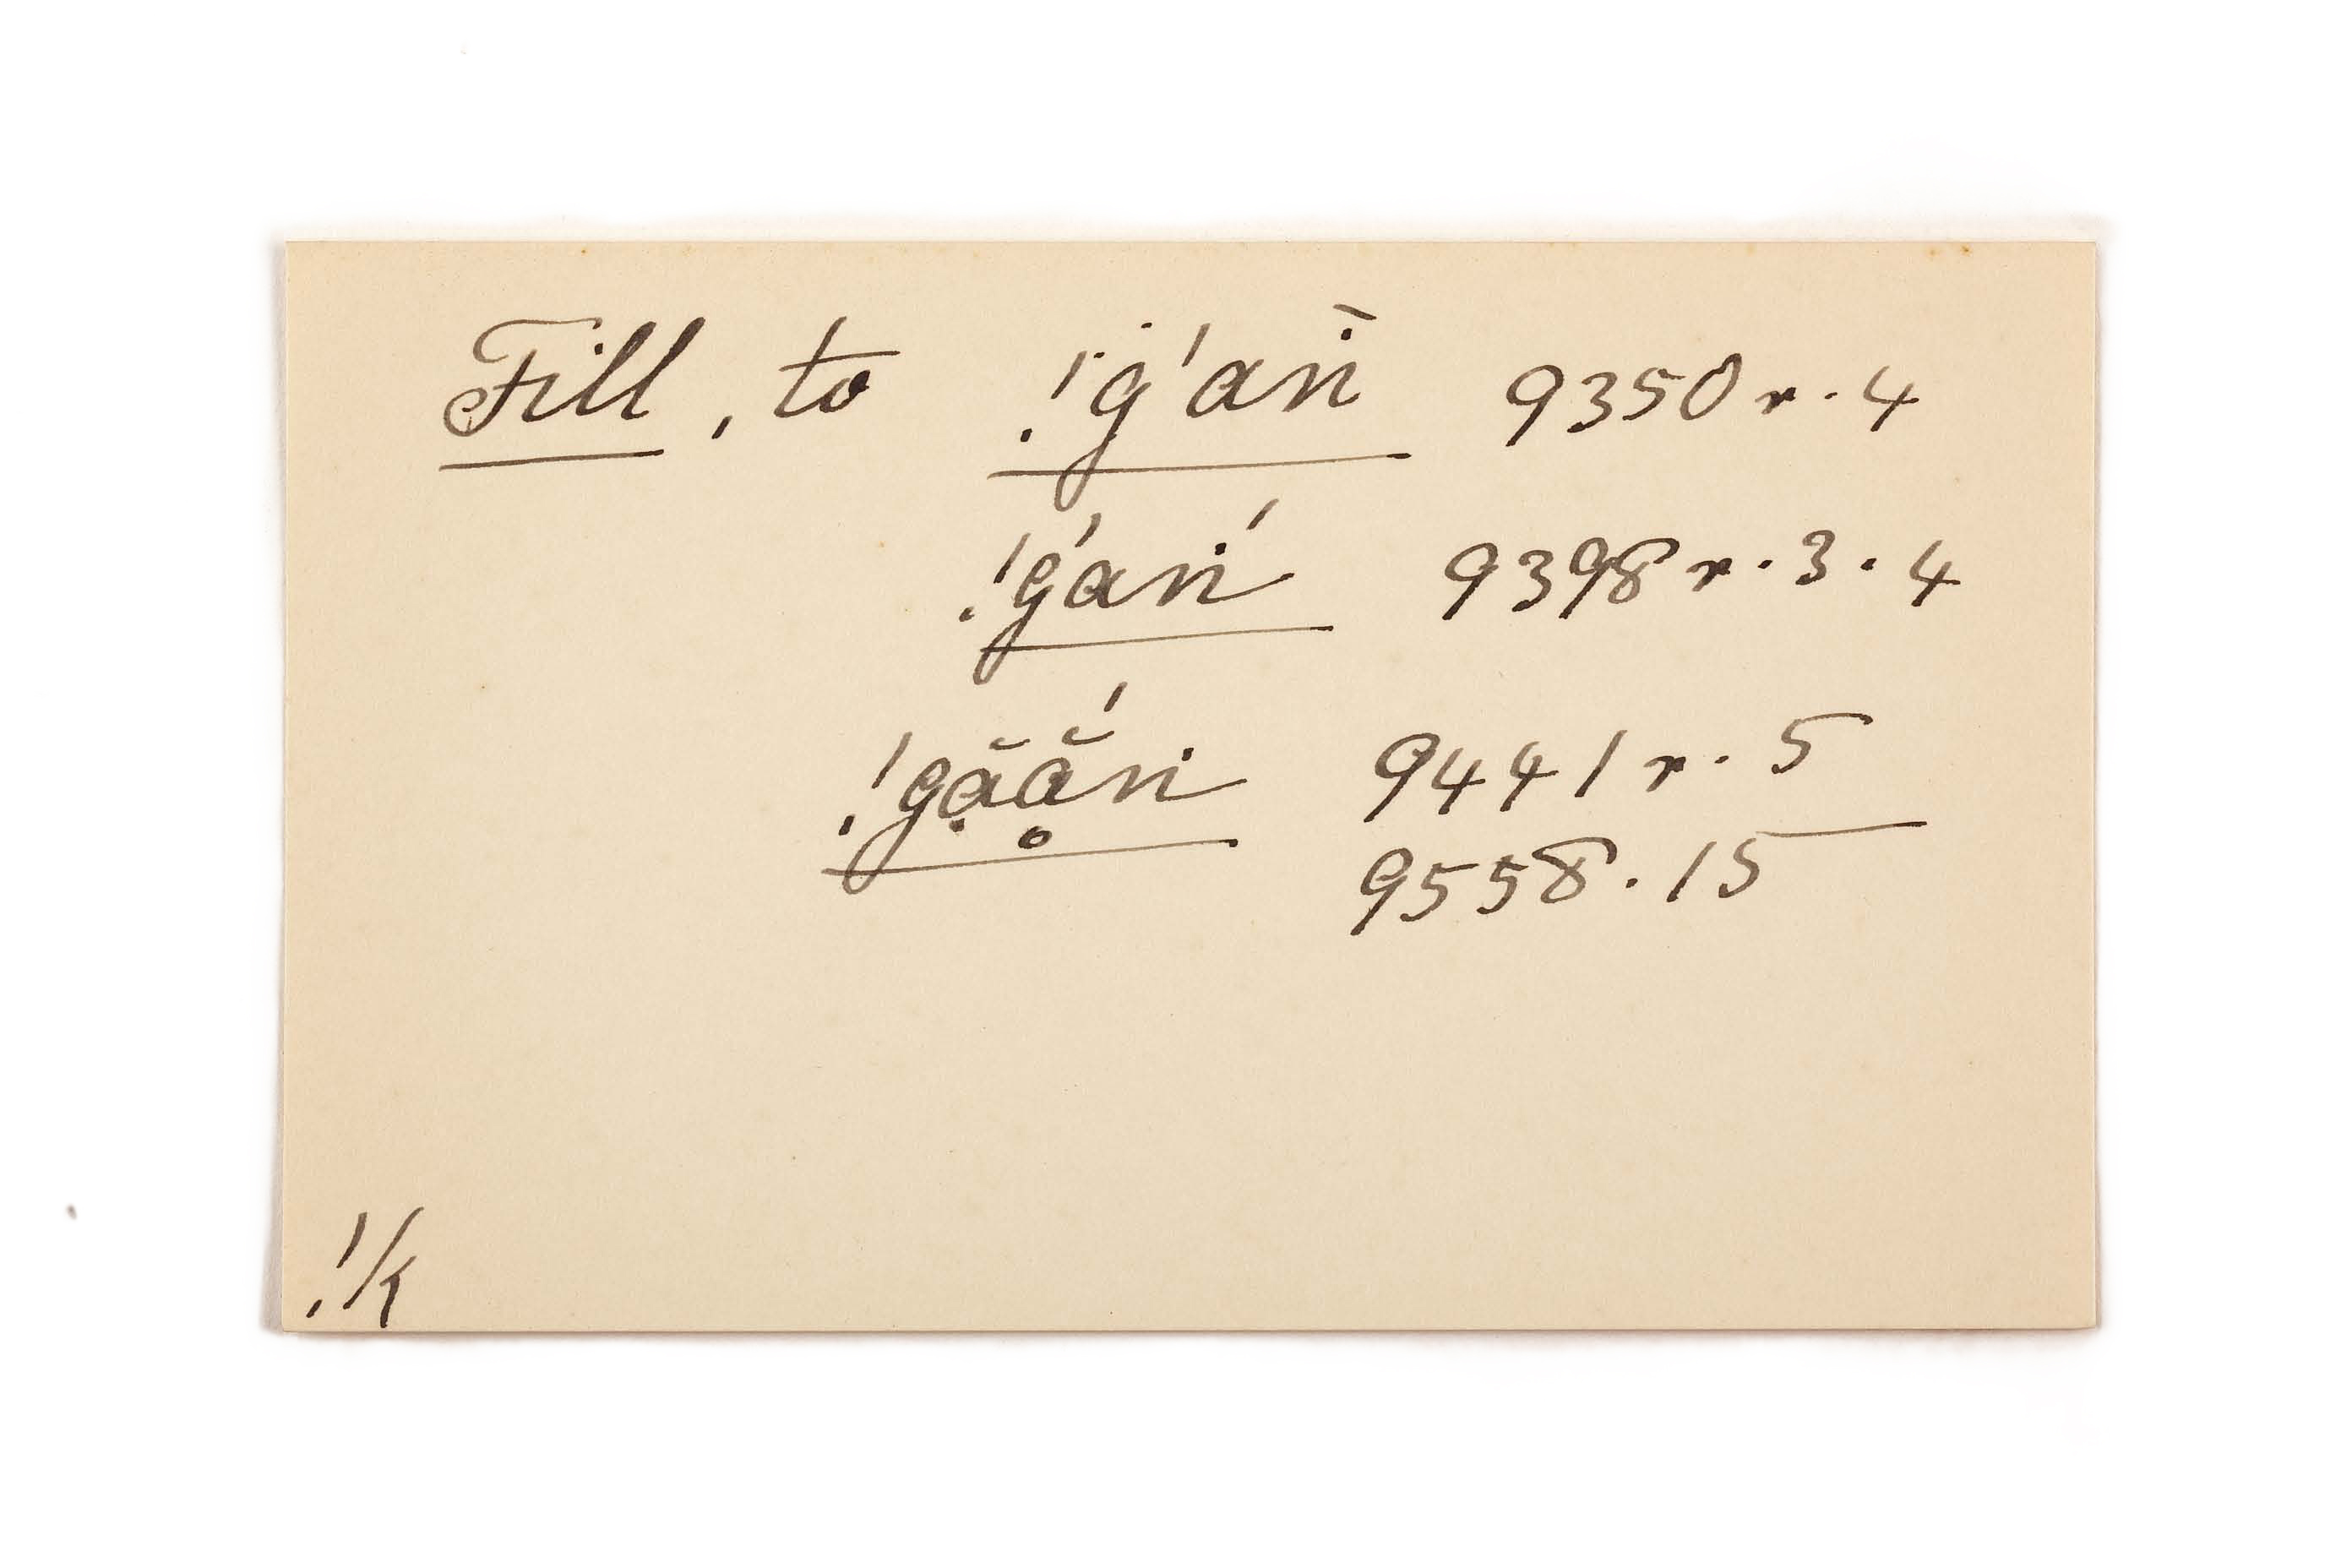 Fill, to !g'aṅ̄ 9350 r. 4
!g'aṅ́ 9398 r. 3. 4
!gặḁ̆́ṅ 9441 r. 5
9558. 15
!k